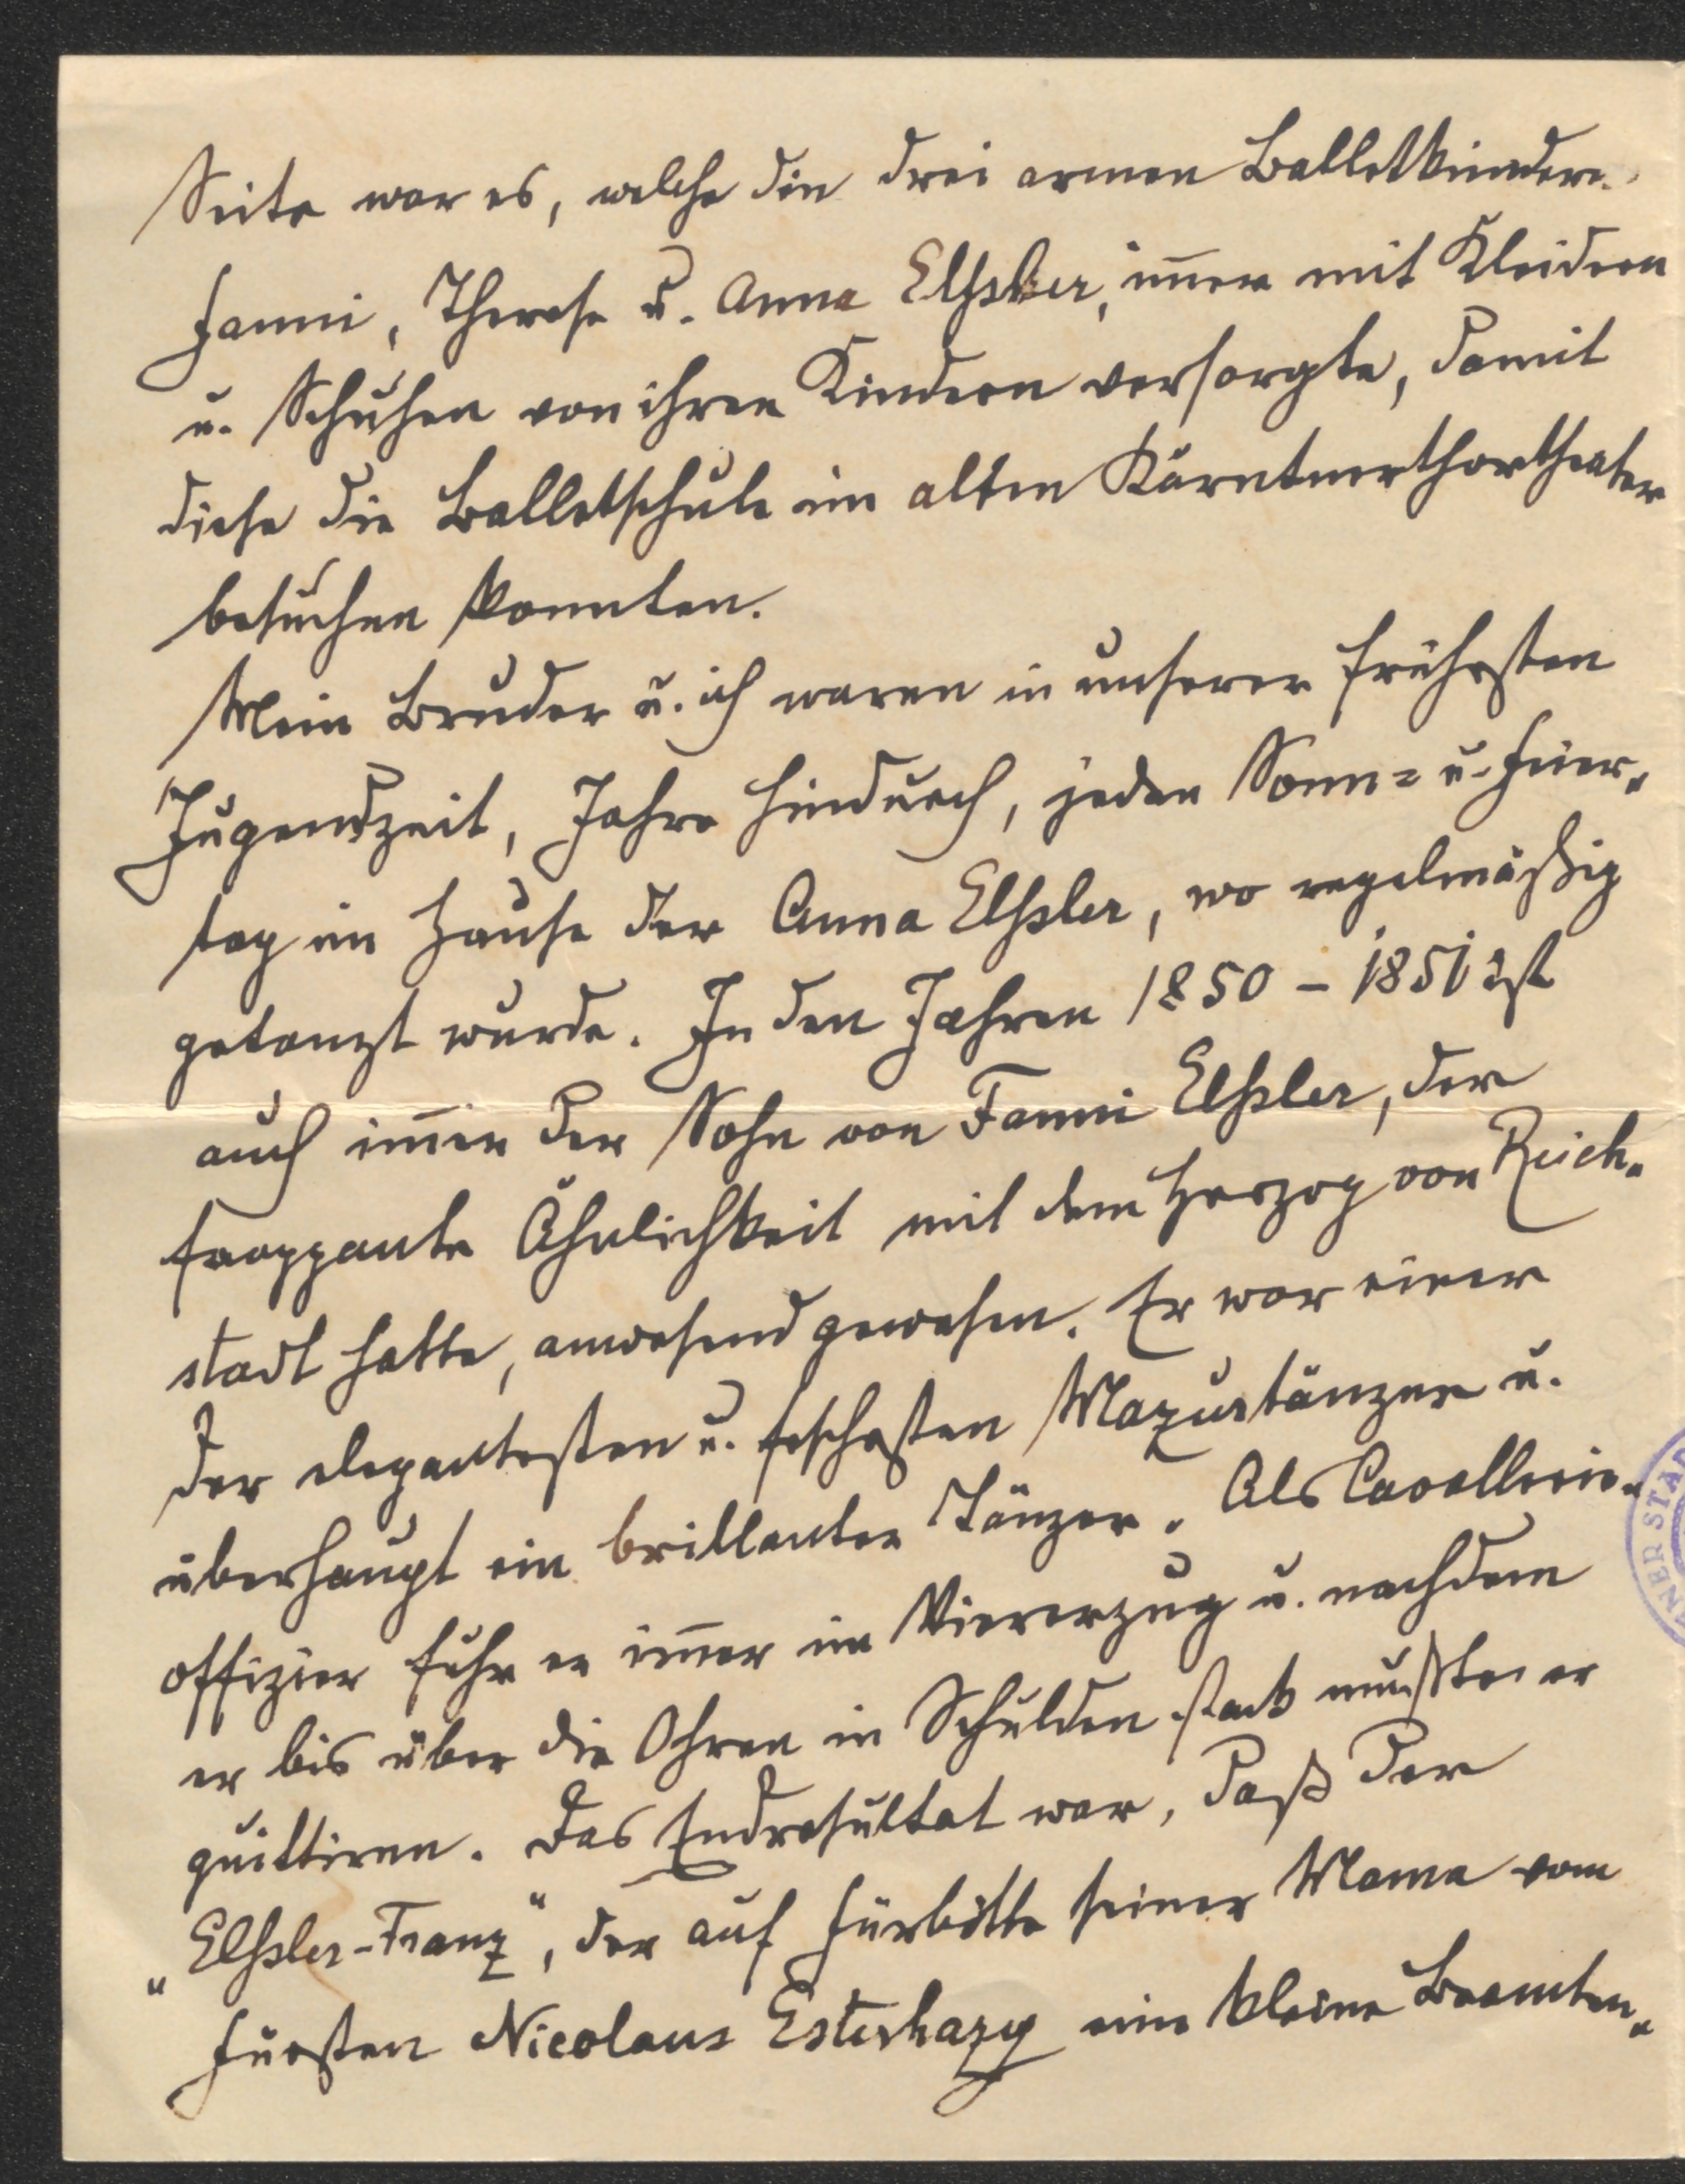 Seite war es, welche die drei armen Balletkindern
Fanni, Therese u. Anna Elßsler, im̅er mit Kleidern
u. Schuhen von ihren Kindern versorgte, damit
diese die Balletschule im alten Kärntnerthortheater
besuchen konnten.
Mein Bruder u. ich waren in unserer frühesten
Jugendzeit, Jahre hindurch, jeden Sonn= u. Feier„
tag im Hause der Anna Elßsler, wo regelmäßig
getanzt wurde. In den Jahren 1850 – 1851 ist
auch im̅er der Sohn von Fanni Elßsler, der
frappante Ähnlichkeit mit dem Herzog von Reich„
stadt hatte, anwesend gewesen. Er war einer
der elegantesten u. feschesten Mazurtänzer u.
überhaupt ein brillanter Tänzer. Als Cavallerie„
offizier fuhr er im̅er im Viererzug u. nachdem
er bis über die Ohren in Schulden stack mußte er
quittiren. Das Endresultat war, daß der
„Elßsler-Franz“, der auf Fürbitte seiner Mama vom
Fürsten Nicolaus Esterhazy eine kleine Beamten„
NER STAD